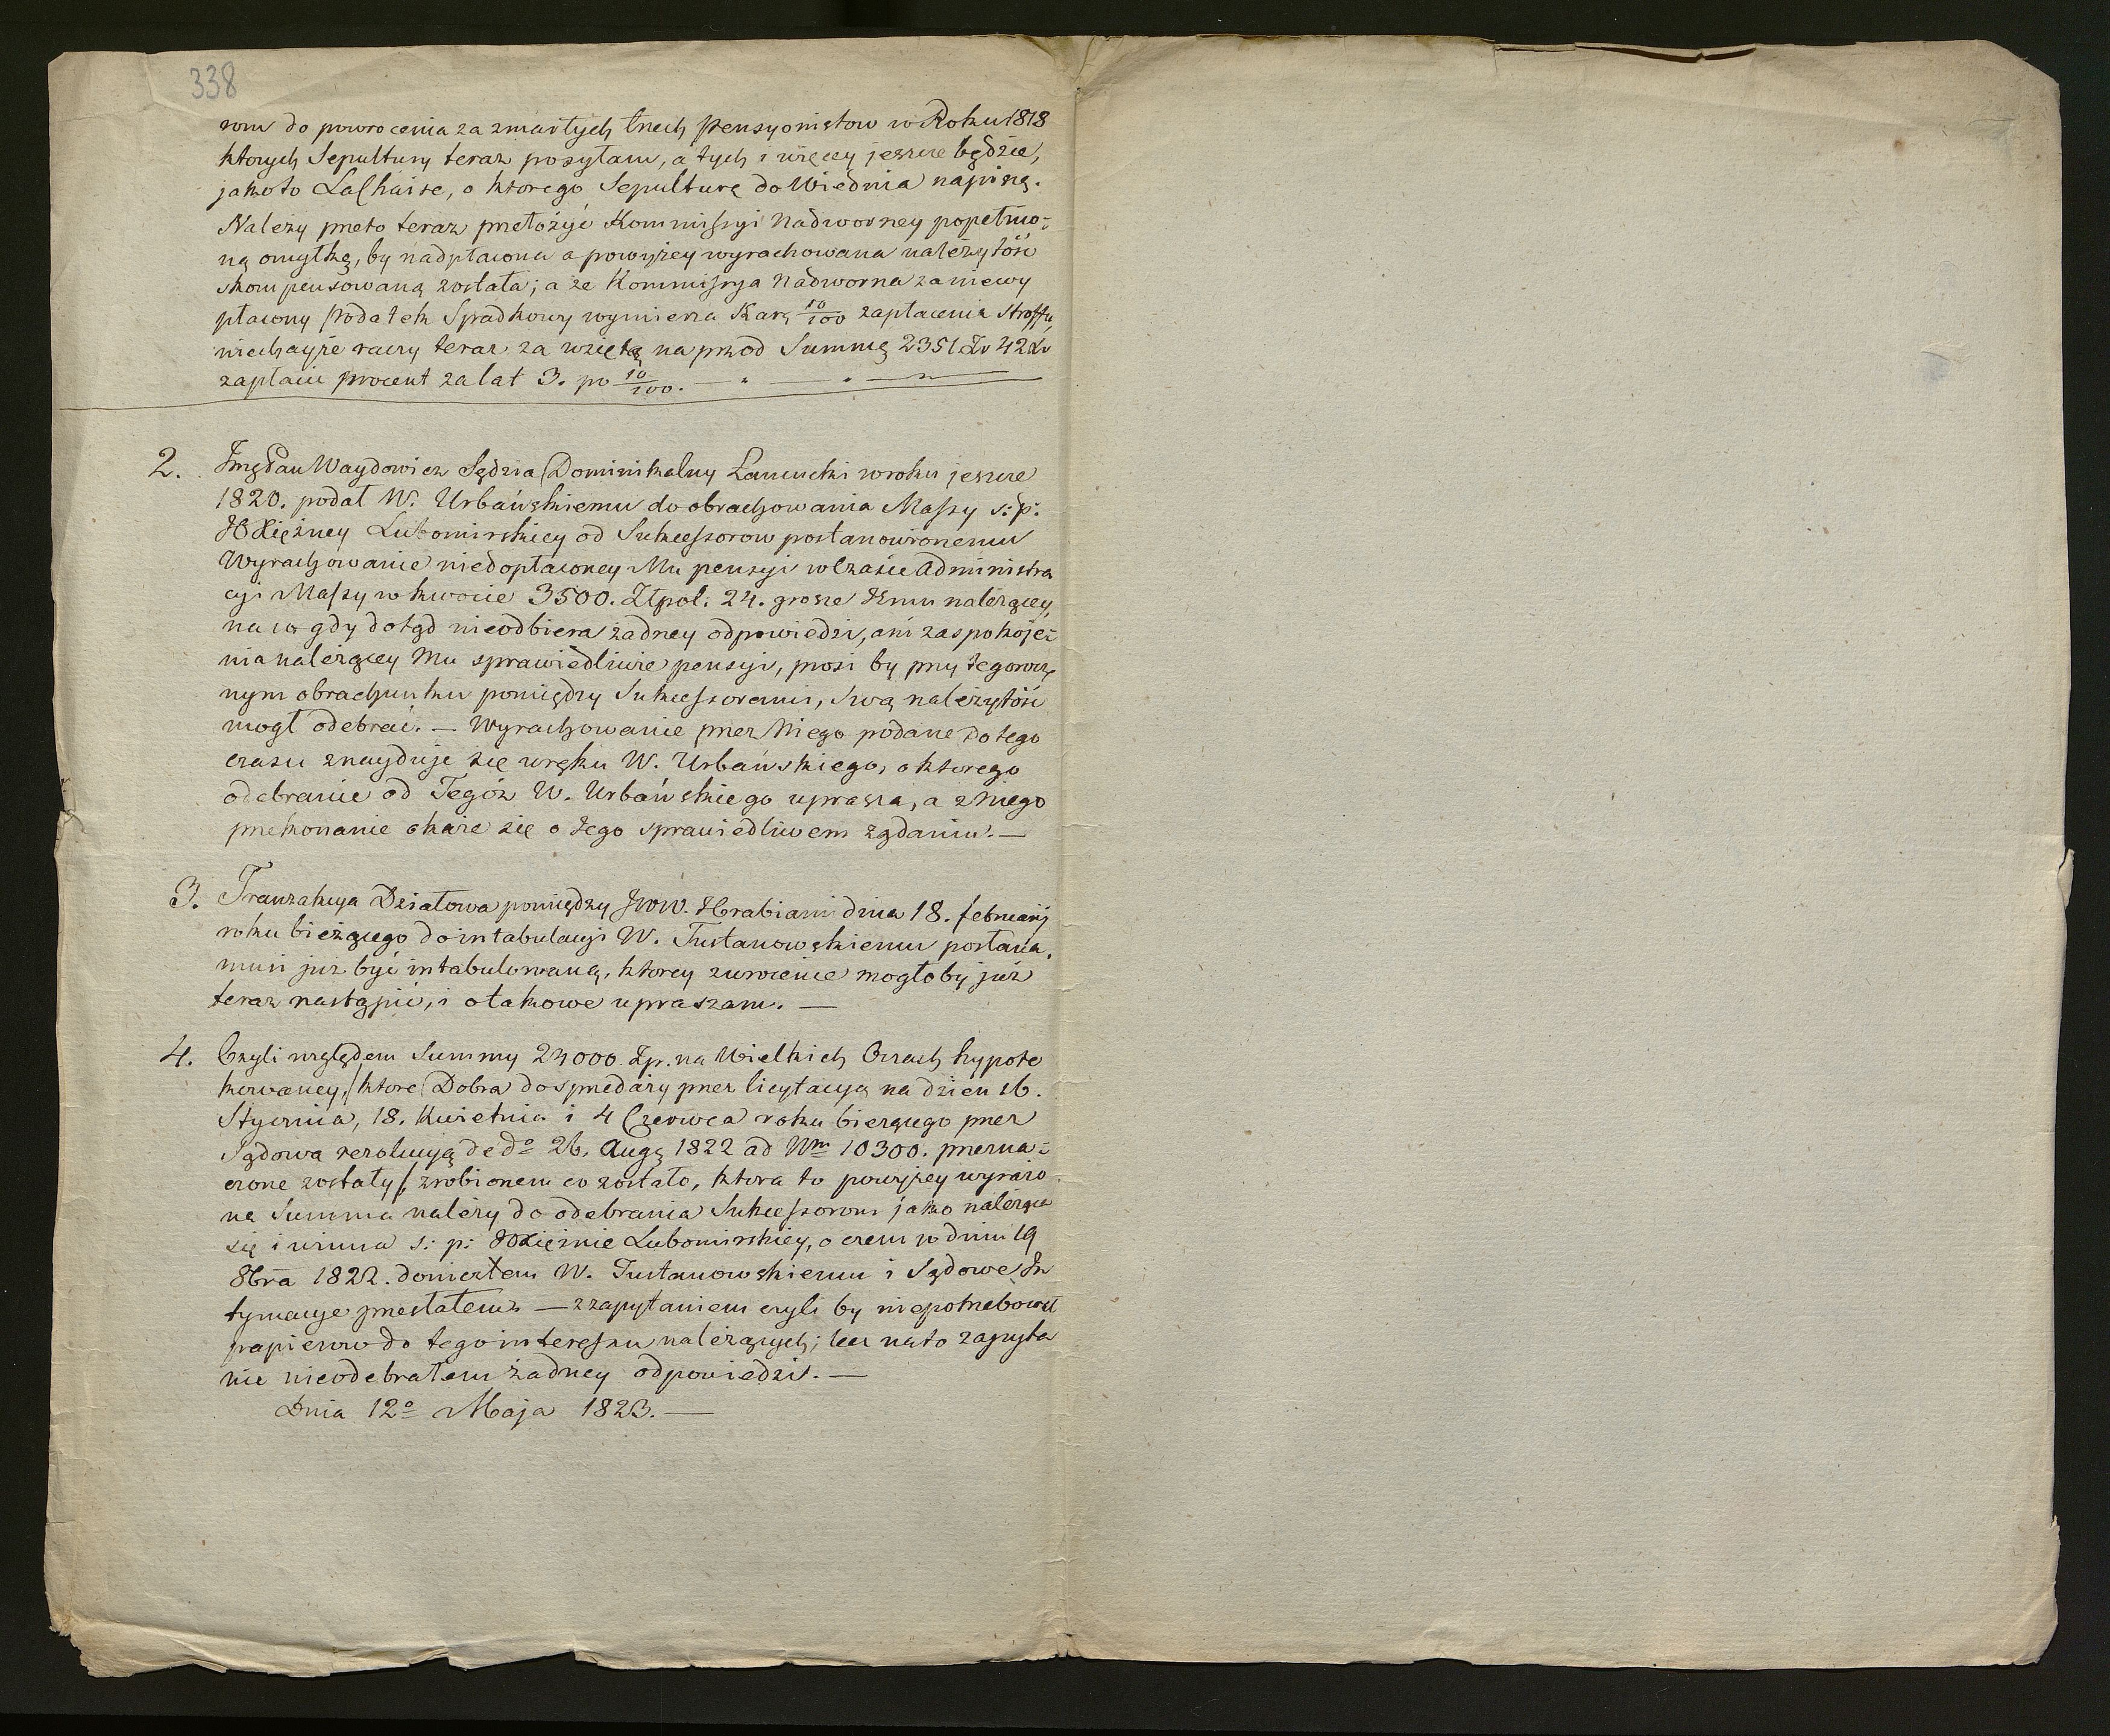 338
rom do powrocenia za zmarłych trzech Pensyonistow w Roku 1818
ktorych Sepultury teraz posyłam, a tych i więcey jeszcze będzie,
jakoto LaChaise, o ktorego Sepulturę do Wiednia napiszę.
Należy przeto teraz przełożyć Kommissyi Nadworney popełnio-
ną omyłkę, by nadpłacona a powyżey wyrachowana należytość
skompensowaną została; a że Kommissya Nadworna za niewy
płacony Podatek Spadkowy wymierza Karę 10/100 zapłacenia Stroffu,
niechayże raczy teraz za wziętą naprzod Summę 2351 Zr 42 Xr
zapłacić procent za lat 3. po 10/100. — " — " —
2. Jmć Pan Waydowicz Sędzia Dominikalny Łancucki w roku jeszcze
1820. podał W. Urbańskiemu do obrachowania Massy ś: p:
JO Xiężney Lubomirskiey od Sukcessorow postanowionemu
Wyrachowanie niedopłaconey Mu pensyi w Czasie administra
cyi Massy w kwocie 3500. Złpol. 24. grosze Jemu należącey,
na co gdy dotąd nieodbiera żadney odpowiedzi, ani zaspokoje-
nia należącey Mu sprawiedliwie pensyi, prosi by przy tegorocz
nym obrachunku pomiędzy Sukcessorami, Swą należytość
mogł odebrać. — Wyrachowanie przez Niego podane do tego
czasu znayduje się w ręku W. Urbańskiego, o ktorego
odebranie od Tegóż W. Urbańskiego uprasza, a z niego
przekonanie okaże się o Jego sprawiedliwem żądaniu. —
3. Tranzakcya Działowa pomiędzy JWW. Hrabiami dnia 18. februarij
roku bieżącego do intabulacyi W. Tustanowskiemu postana.
musi już być intabulowaną, ktorey zwrocenie mogłoby już
teraz nastąpić, i o takowe upraszam. —
4. Czyli względem Summy 24000. Zp. na Wielkich Oczach hypote
kowaney, / ktore Dobra do sprzedaży przez licytacyą na dzien 16.
Stycznia, 18. Kwietnia i 4 Czerwca roku bieżącego przez
Sądowa rezolucyą de do 26. Augę 1822 ad Nrm 10300. przezna-
czone zostały /, zrobionem co zostało, ktora to powyżey wyrażo
na Summa należy do odebrania Sukcessorom jako należąca
się i winna ś: p: JO Xiężnie Lubomirskiey, o czem w dniu 19
8bra 1822. doniosłem W. Tustanowskiemu i Sądowe In
tymacye przesłałem — z zapytaniem czyli by niepotrzebował
papierow do tego interessu należących; lecz na to zapyta
nie nieodebrałem żadney odpowiedzi. —
Dnia 12o Maja 1823. —